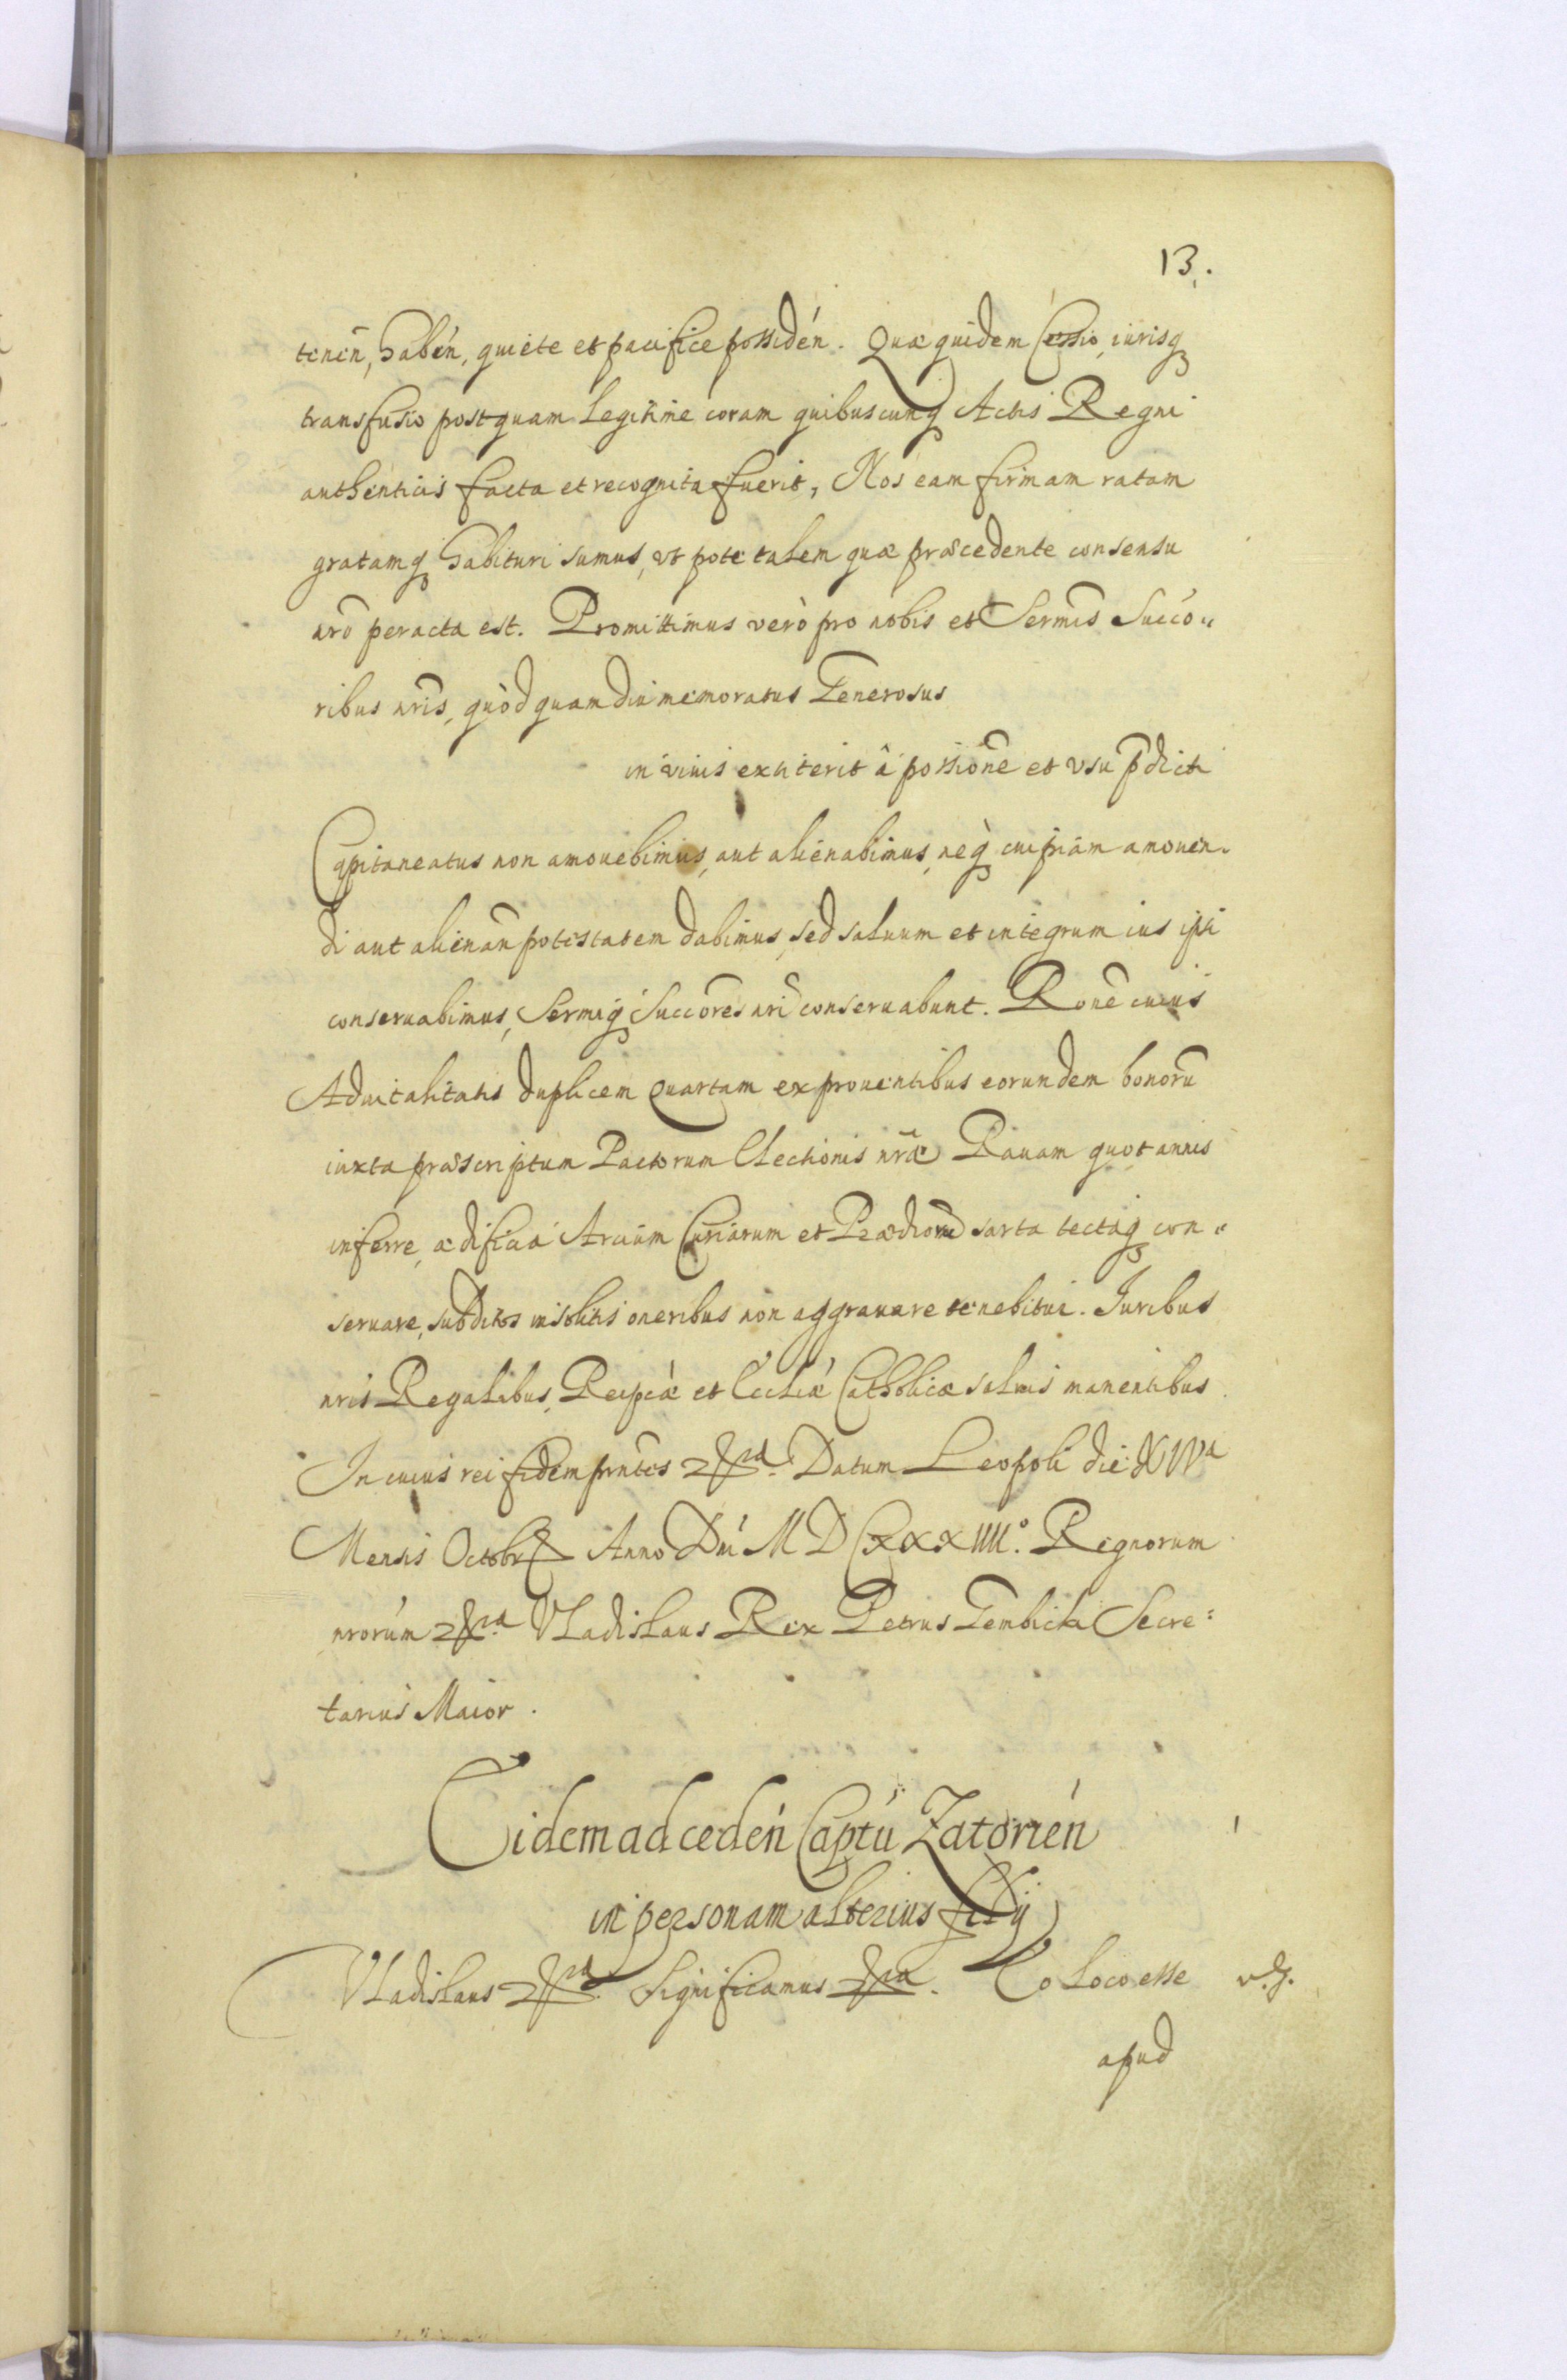 13.
tenen̄, haben̄, quiete et pacifice possiden̄. Quæ quidem Cessio, iurisq
transfusio postquam legitime coram quibuscunq Actis Regni
authenticis facta et recognita fuerit, Nos eam firmam ratam
gratamq habituri sumus, vt pote talem quæ præcedente consensu
nr̄o peracta est. Promittimus verò pro nobis et Serm̄is Succo„
ribus nr̄is, quòd quamdiu memoratus Generosus
in viuis extiterit â possione et vsu p̄dicti
Capitaneatus non amouebimus, aut alienabimus, neq̀ cuipiam amouen„
di aut alienan̄ potestatem dabimus, sed saluum et integrum ius ipsi
conseruabimus, Sermiq Succores nr̄i conseruabunt. Rone cuius
Aduitalitatis duplicem Quartam ex prouentibus eorundem bonorū
iuxta præscriptum Pactorum Electionis nr̄æ Rauam quotannis
inferre, ædificia Arcium Curiarum et Prædiorū sarta tectaq con„
seruare, subditos insolitis oneribus non aggrauare tenebitur. Iuribus
nris Regalibus, Reipcæ et Eccliæ Catholicæ saluis manentibus.
In cuius rei fidem pn̄tes &ra. Datum Leopoli die
Mensis Octobr Anno Dni M D CXXXIIII.º Regnorum
nrorum &ra Vladislaus Rex Petrus Gembicki Secre:
tarius Maior.
Eidem ad ceden̄ Captū Zatorien̄
in personam alterius filij
Vladislaus &ra. Significamus &ra. Eo loco esse
apud